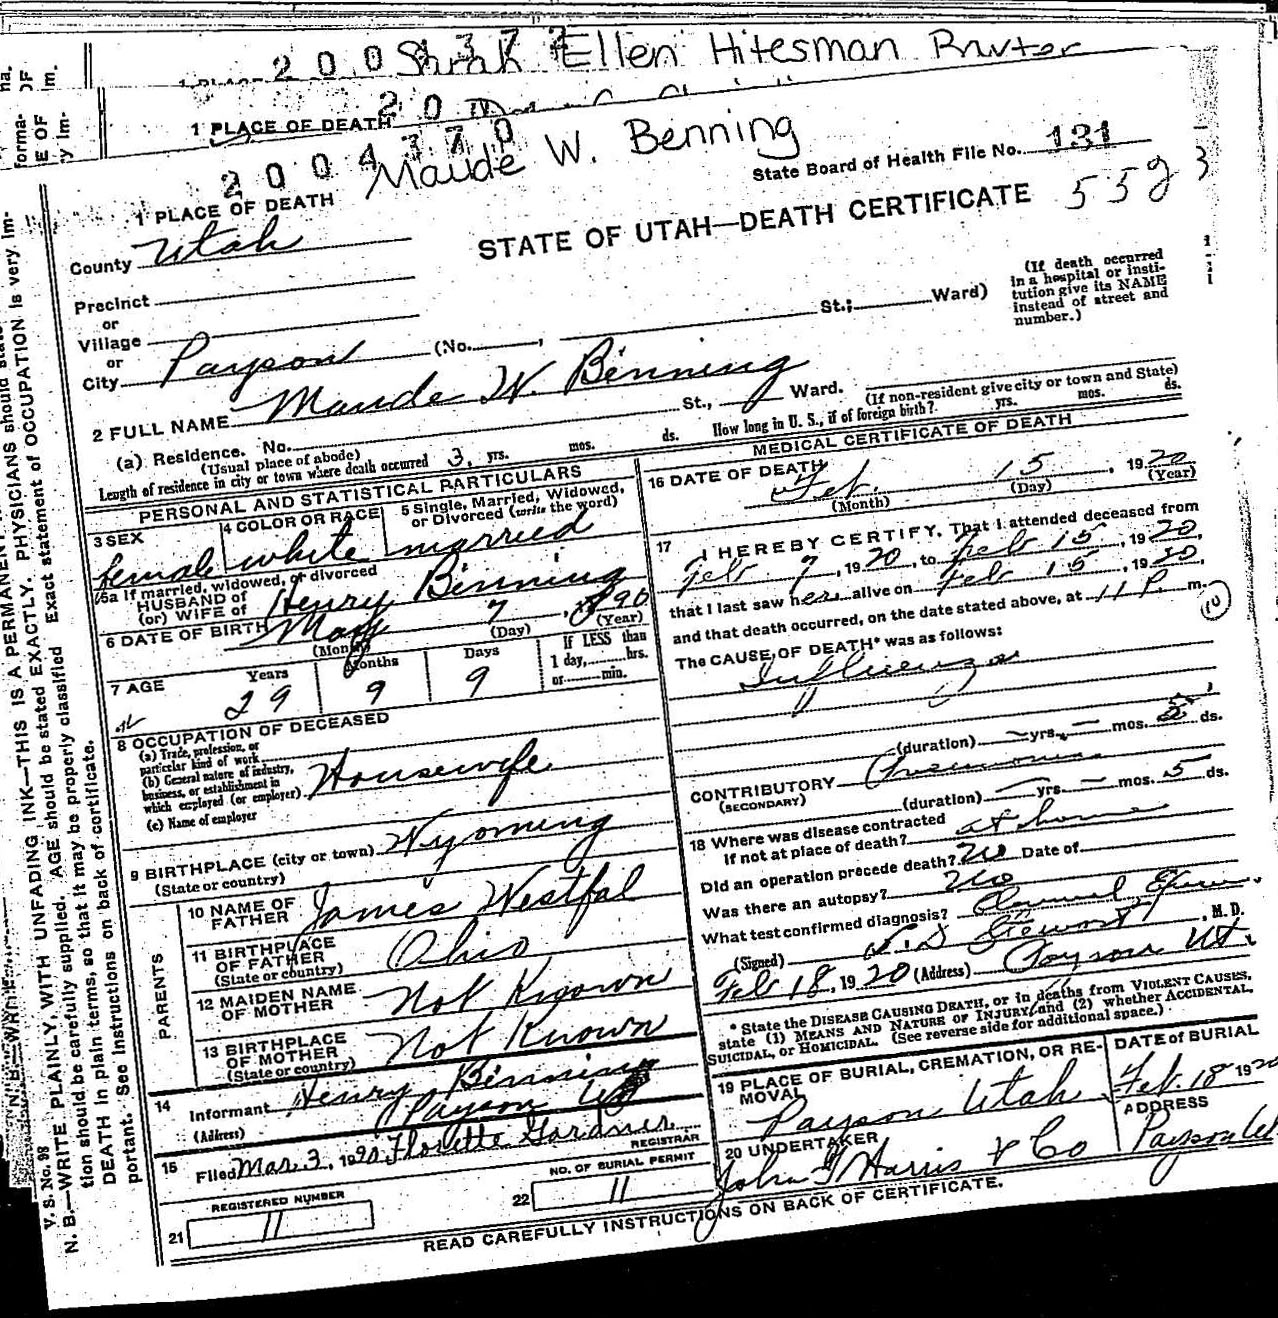 2004377 Sarah Ellen Hitesman
20
1 PLACE OF DEATH
2004370 Maude W. Benning
State Board of Health File No. 131
1 PLACE OF DEATH
STATE OF UTAH—DEATH CERTIFICATE
County Utah
Precinct
or
Village
or
City Payson (No. , St.; Ward)
(If death occurred in a hospital or institution give its NAME instead of street and number.)
2 FULL NAME Maude W. Benning
(a) Residence. No. St., Ward.
(Usual place of abode) (If non-resident give city or town and State)
Length of residence in city or town where death occurred 3 yrs. mos. ds. How long in U. S., if of foreign birth? yrs. mos. ds.
PERSONAL AND STATISTICAL PARTICULARS
3 SEX female
4 COLOR OR RACE white
5 Single, Married, Widowed, or Divorced (write the word) married
5a If married, widowed, or divorced
HUSBAND of
(or) WIFE of Henry Benning
6 DATE OF BIRTH May 7, 1890
(Month) (Day) (Year)
7 AGE Years 29 Months 9 Days 9
If LESS than 1 day, hrs. or min.
8 OCCUPATION OF DECEASED
(a) Trade, profession, or particular kind of work
(b) General nature of industry, business, or establishment in which employed (or employer) Housewife
(c) Name of employer
9 BIRTHPLACE (city or town) Wyoming
(State or country)
PARENTS
10 NAME OF FATHER James Westfal
11 BIRTHPLACE OF FATHER (State or country) Ohio
12 MAIDEN NAME OF MOTHER Not Known
13 BIRTHPLACE OF MOTHER (State or country) Not Known
14 Informant Henry Benning
(Address) Payson
15 Filed Mar. 3, 1920 Florette Gardner
REGISTRAR
21 REGISTERED NUMBER 11
22 NO. OF BURIAL PERMIT 11
MEDICAL CERTIFICATE OF DEATH
16 DATE OF DEATH Feb. 15, 1920
(Month) (Day) (Year)
17 I HEREBY CERTIFY, That I attended deceased from
Feb 7, 1920, to Feb 15, 1920,
that I last saw her alive on Feb 15, 1920,
and that death occurred, on the date stated above, at 11 P. m.
The CAUSE OF DEATH* was as follows:
Influenza
(duration) — yrs. — mos. 5 ds.
CONTRIBUTORY Pneumonia
(SECONDARY)
(duration) — yrs. — mos. 5 ds.
18 Where was disease contracted
if not at place of death? at home
Did an operation precede death? No Date of
Was there an autopsy? No
What test confirmed diagnosis?
(Signed) Stewart, M. D.
Feb 18, 1920 (Address) Payson Ut.
* State the DISEASE CAUSING DEATH, or in deaths from VIOLENT CAUSES, state (1) MEANS AND NATURE OF INJURY, and (2) whether ACCIDENTAL, SUICIDAL, or HOMICIDAL. (See reverse side for additional space.)
19 PLACE OF BURIAL, CREMATION, OR REMOVAL Payson Utah
DATE of BURIAL Feb. 18 1920
20 UNDERTAKER John Harris & Co
ADDRESS Payson Ut
READ CAREFULLY INSTRUCTIONS ON BACK OF CERTIFICATE.
V. S. No. 98
N. B.—WRITE PLAINLY, WITH UNFADING INK—THIS IS A PERMANENT
tion should be carefully supplied. AGE should be stated EXACTLY. PHYSICIANS should state
DEATH in plain terms, so that it may be properly classified Exact statement of OCCUPATION is very im-
portant. See instructions on back of certificate.